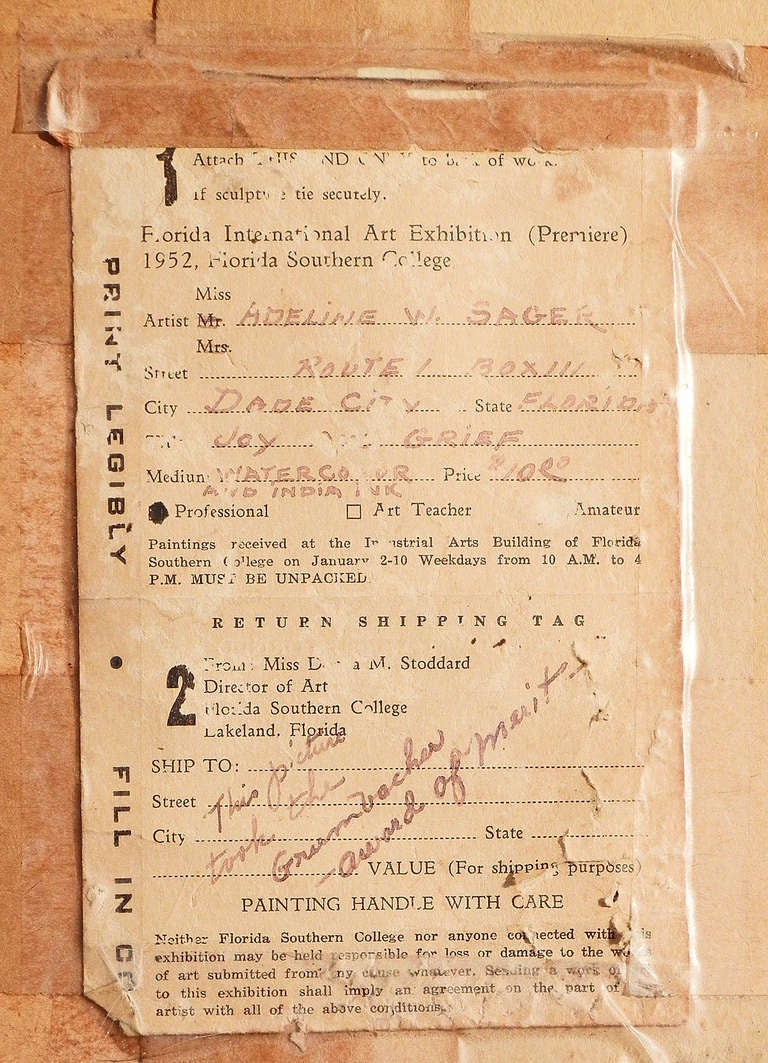 1 Attach to of
If tie securely.
Florida International Art Exhibition (Premiere)
1952, Florida Southern College
Miss
Artist Mr. ADELINE W. SAGER
Mrs.
Street ROUTE 1 BOX 111
City DADE CITY State FLORIDA
JOY GRIEF
Medium WATERCOLOR Price
AND INDIA INK
Professional Art Teacher Amateur
Paintings received at the Industrial Arts Building of Florida
Southern College on January 2-10 Weekdays from 10 A.M. to 4
P.M. MUST BE UNPACKED
RETURN SHIPPING TAG
2 From: Miss M. Stoddard
Director of Art
Florida Southern College
Lakeland, Florida
SHIP TO:
Street
City State
VALUE (For shipping purposes)
This picture
took the
Grumbacher
award of merit
PAINTING HANDLE WITH CARE
Neither Florida Southern College nor anyone connected with this
exhibition may be held responsible for loss or damage to the works
of art submitted from any cause whatever. Sending a work of
to this exhibition shall imply an agreement on the part of
artist with all of the above conditions.
PRINT LEGIBLY
FILL IN